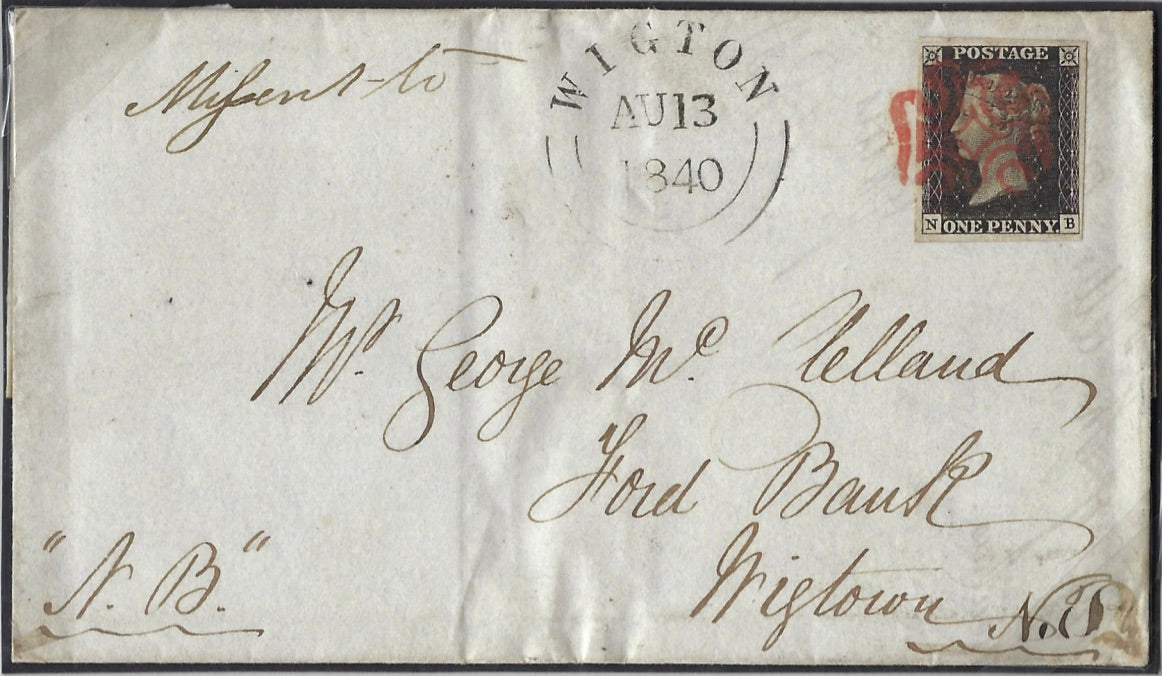 Missent to
WIGTON
AU 13
1840
POSTAGE
N ONE PENNY. B
Mr. George Mc. Lelland
Ford Bank
Wigtown
"N. B."
N.B